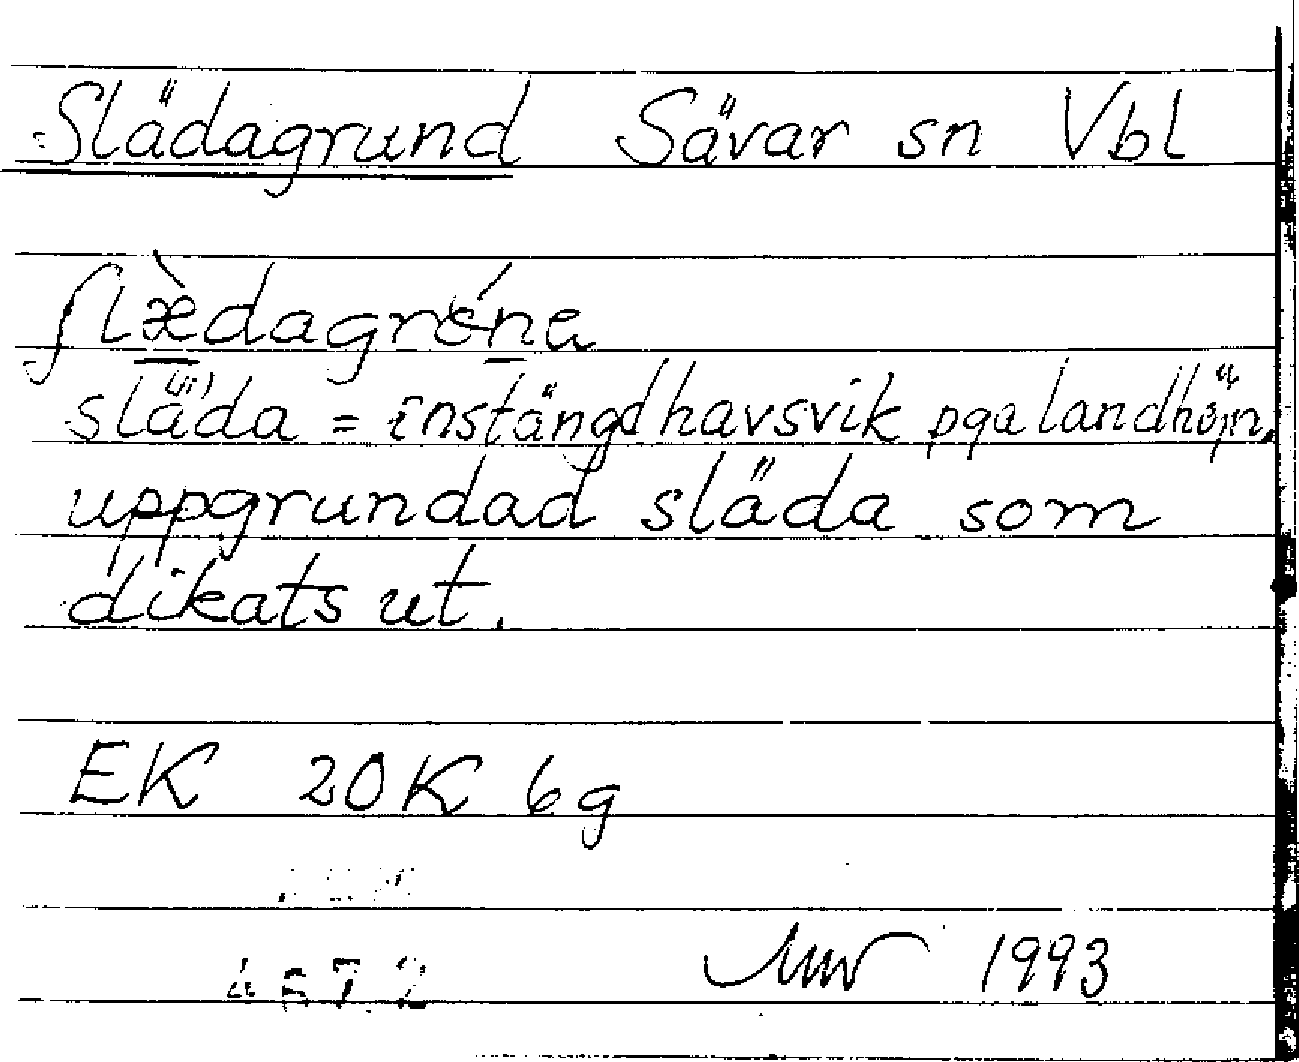 Slädagrund Sävar sn Vbl
ʃlæ̀dagréna
släda = instängd havsvik pga landhöjn.
uppgrundad släda som
dikats ut.
EK 20K 6g
1993